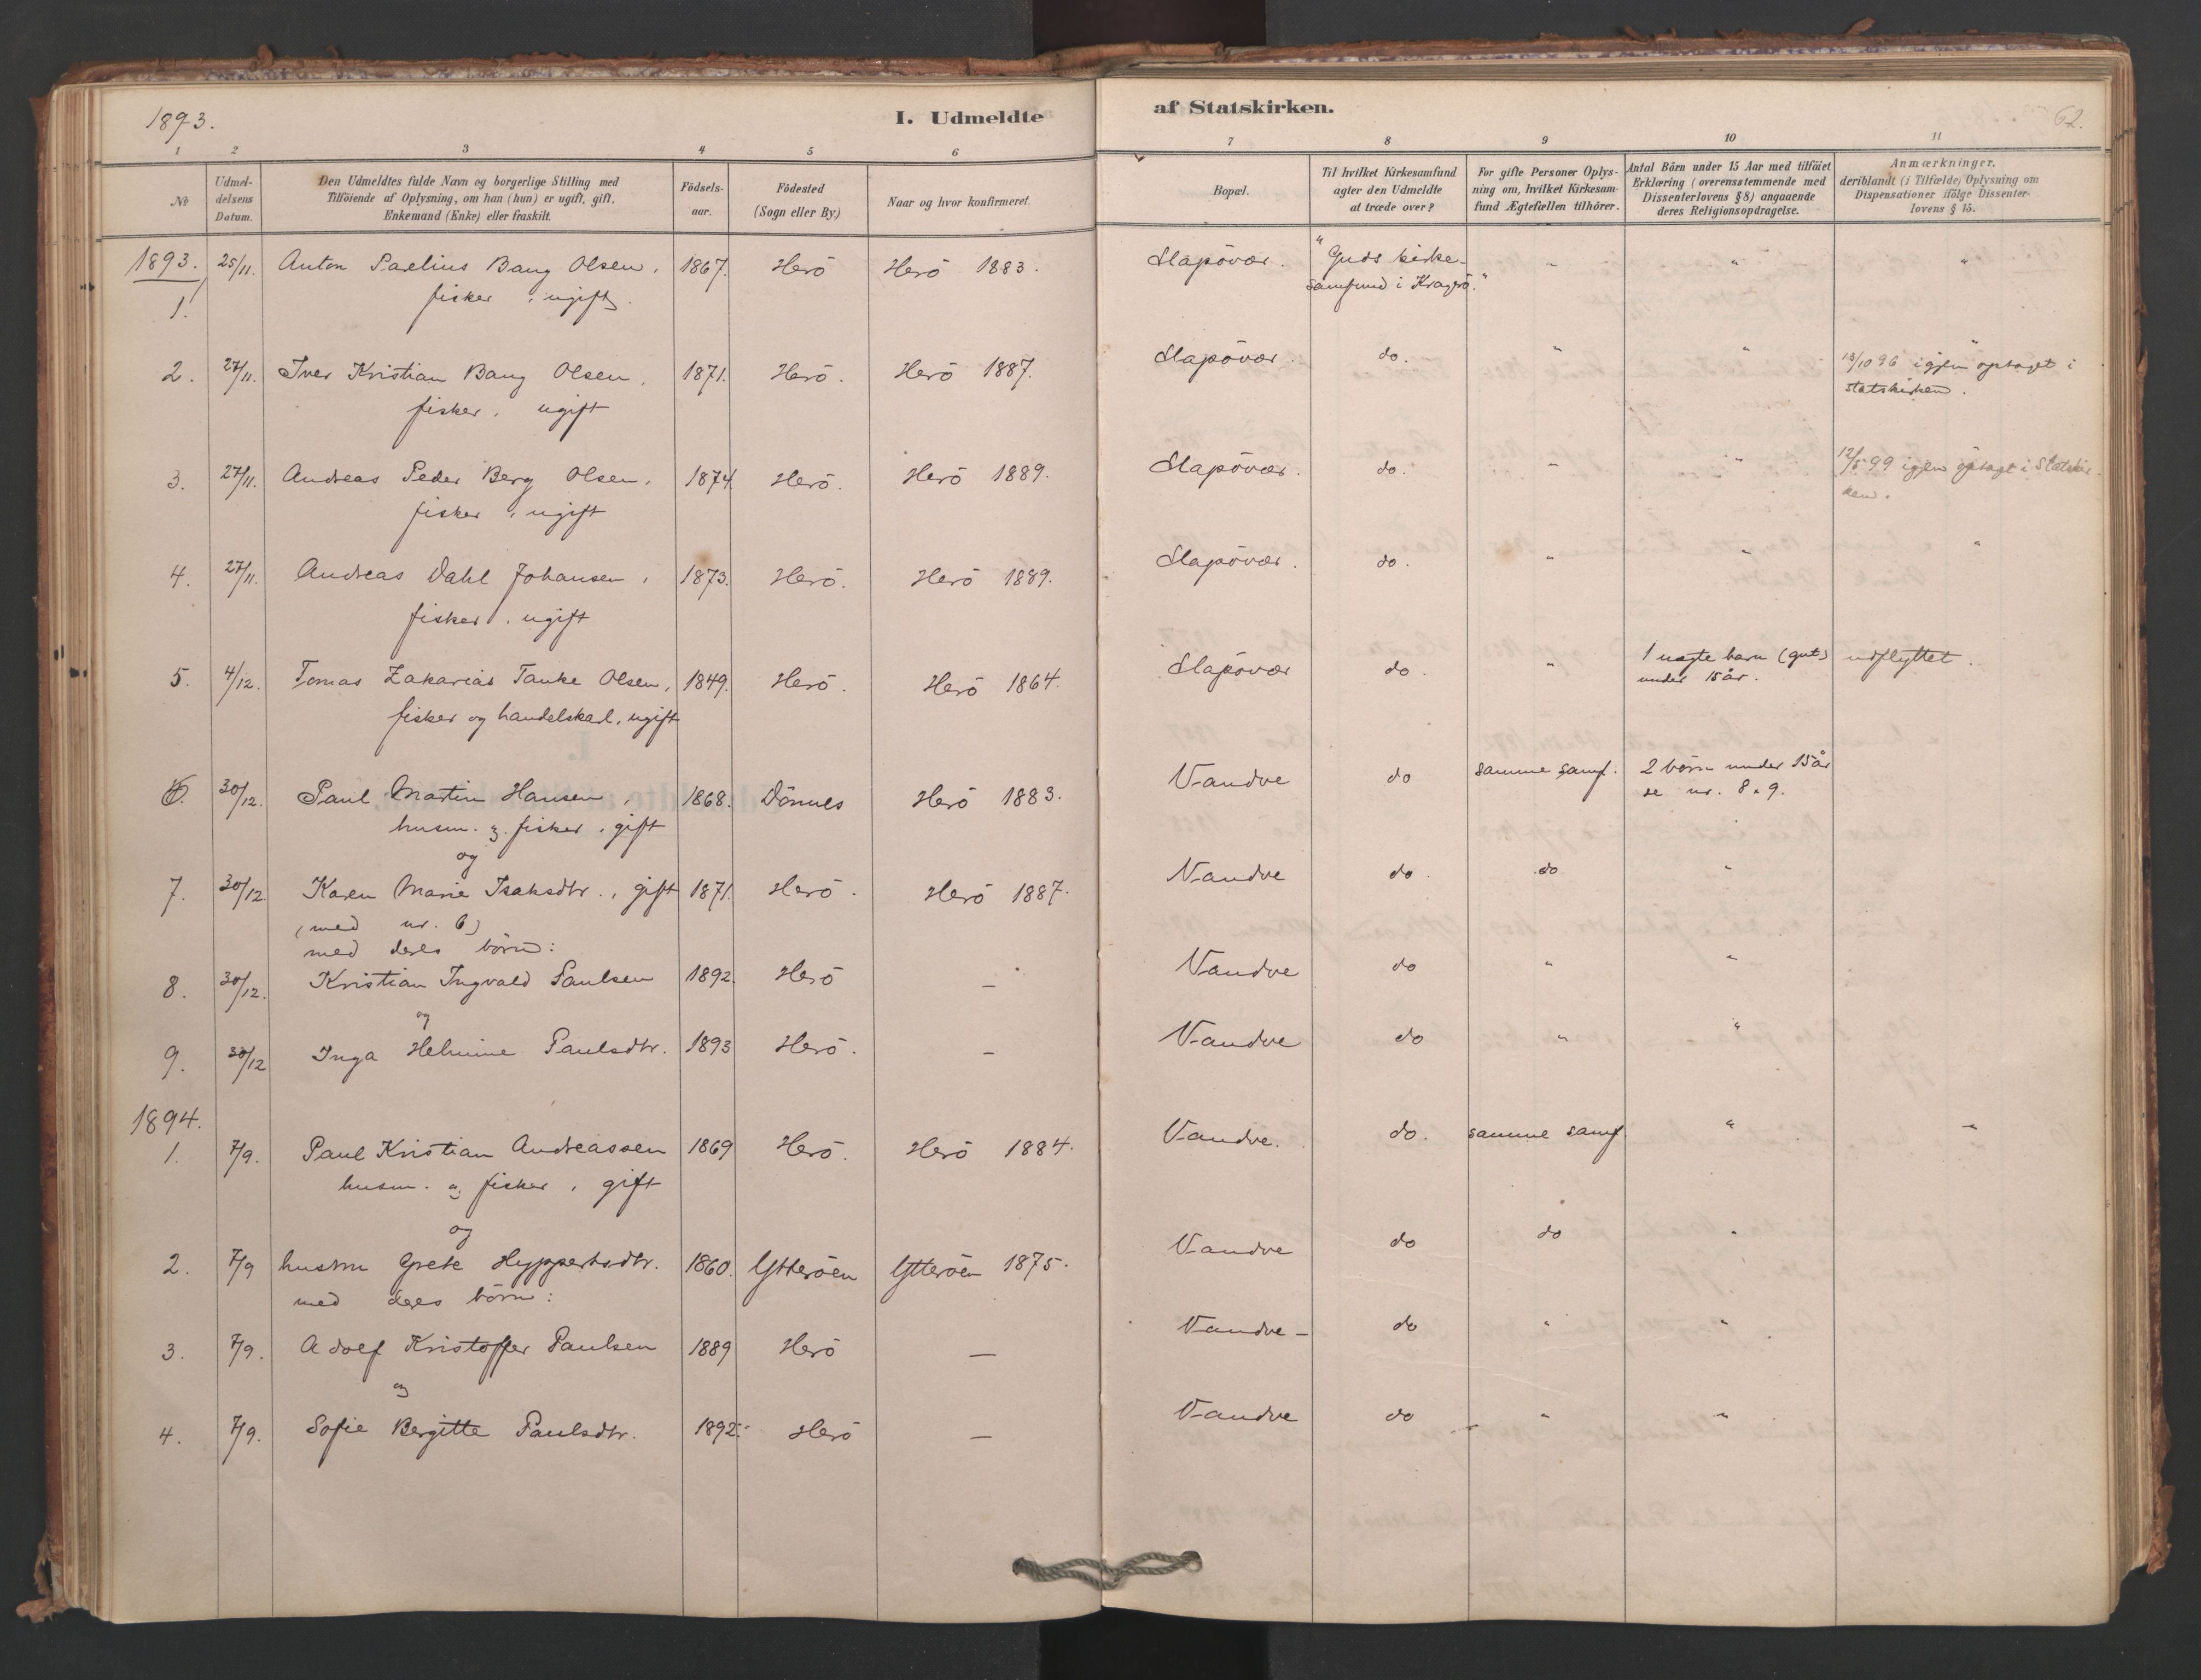 1893.
I. Udmeldte af Statskirken.
62.
1 2 3 4 5 6 7 8 9 10 11
No
Udmeldelsens Datum.
Den Udmeldtes fulde Navn og borgerlige Stilling med Tilföiende af Oplysning, om han (hun) er ugift, gift, Enkemand (Enke) eller fraskilt.
Födselsaar.
Födested (Sogn eller By.)
Naar og hvor konfirmeret.
Bopæl.
Til hvilket Kirkesamfund agter den Udmeldte at træde over?
For gifte Personer Oplysning om, hvilket Kirkesamfund Ægtefællen tilhörer.
Antal Börn under 15 Aar med tilföiet Erklæring (overensstemmende med Dissenterlovens § 8) angaaende deres Religionsopdragelse.
Anmærkninger, deriblandt (i Tilfælde) Oplysning om Dispensationer ifölge Dissenterlovens § 15.
1893. 25/11. Anton Parelius Bang Olsen, 1867. Herö Herö 1883. Slapövær. "Guds kirke- " " "
1. fisker, ugift. samfund i Kragerö."
2. 27/11. Iver Kristian Bang Olsen, 1871. Herö. Herö 1887. Slapövær. do. " " 13/10 96 igjen optaget i
fisker, ugift statskirken.
3. 27/11. Andreas Peder Berg Olsen, 1874. Herö. Herö 1889. Slapövær. do. " " 12/5 99 igjen optaget i Statskir-
fisker, ugift ken.
4. 27/11. Andreas Dahl Johansen, 1873. Herö. Herö 1889. Slapövær. do. " " "
fisker, ugift
5. 4/12. Tomas Zakarias Tanke Olsen, 1849. Herö. Herö 1864. Slapövær do. " 1 uægte barn (gut) udflyttet.
fisker og handelskarl, ugift under 15 år.
6. 30/12. Paul Martin Hansen, 1868. Dönnes Herö 1883. Vandve do samme samf. 2 börn under 15 år
husm. og fisker, gift se nr. 8 & 9.
og
7. 30/12. Karen Marie Isaksdtr., gift 1871. Herö. Herö 1887. Vandve do. do "
(med nr. 6)
med deres börn:
8. 30/12. Kristian Ingvald Paulsen 1892. Herö — Vandve do " "
og
9. 30/12 Inga Helmine Paulsdtr. 1893 Herö. — Vandve do " "
1894.
1. 7/9. Paul Kristian Andreassen 1869 Herö. Herö 1884. Vandve. do. samme samf. " "
husm. og fisker, gift
og
2. 7/9 hustru Grete Hyppertsdtr. 1860. Ytteröen Ytteröen 1875. Vandve do do "
med deres börn:
3. 7/9. Adolf Kristoffer Paulsen 1889 Herö — Vandve — do " "
og
4. 7/9. Sofie Bergitte Paulsdtr. 1892. Herö — Vandve do " "